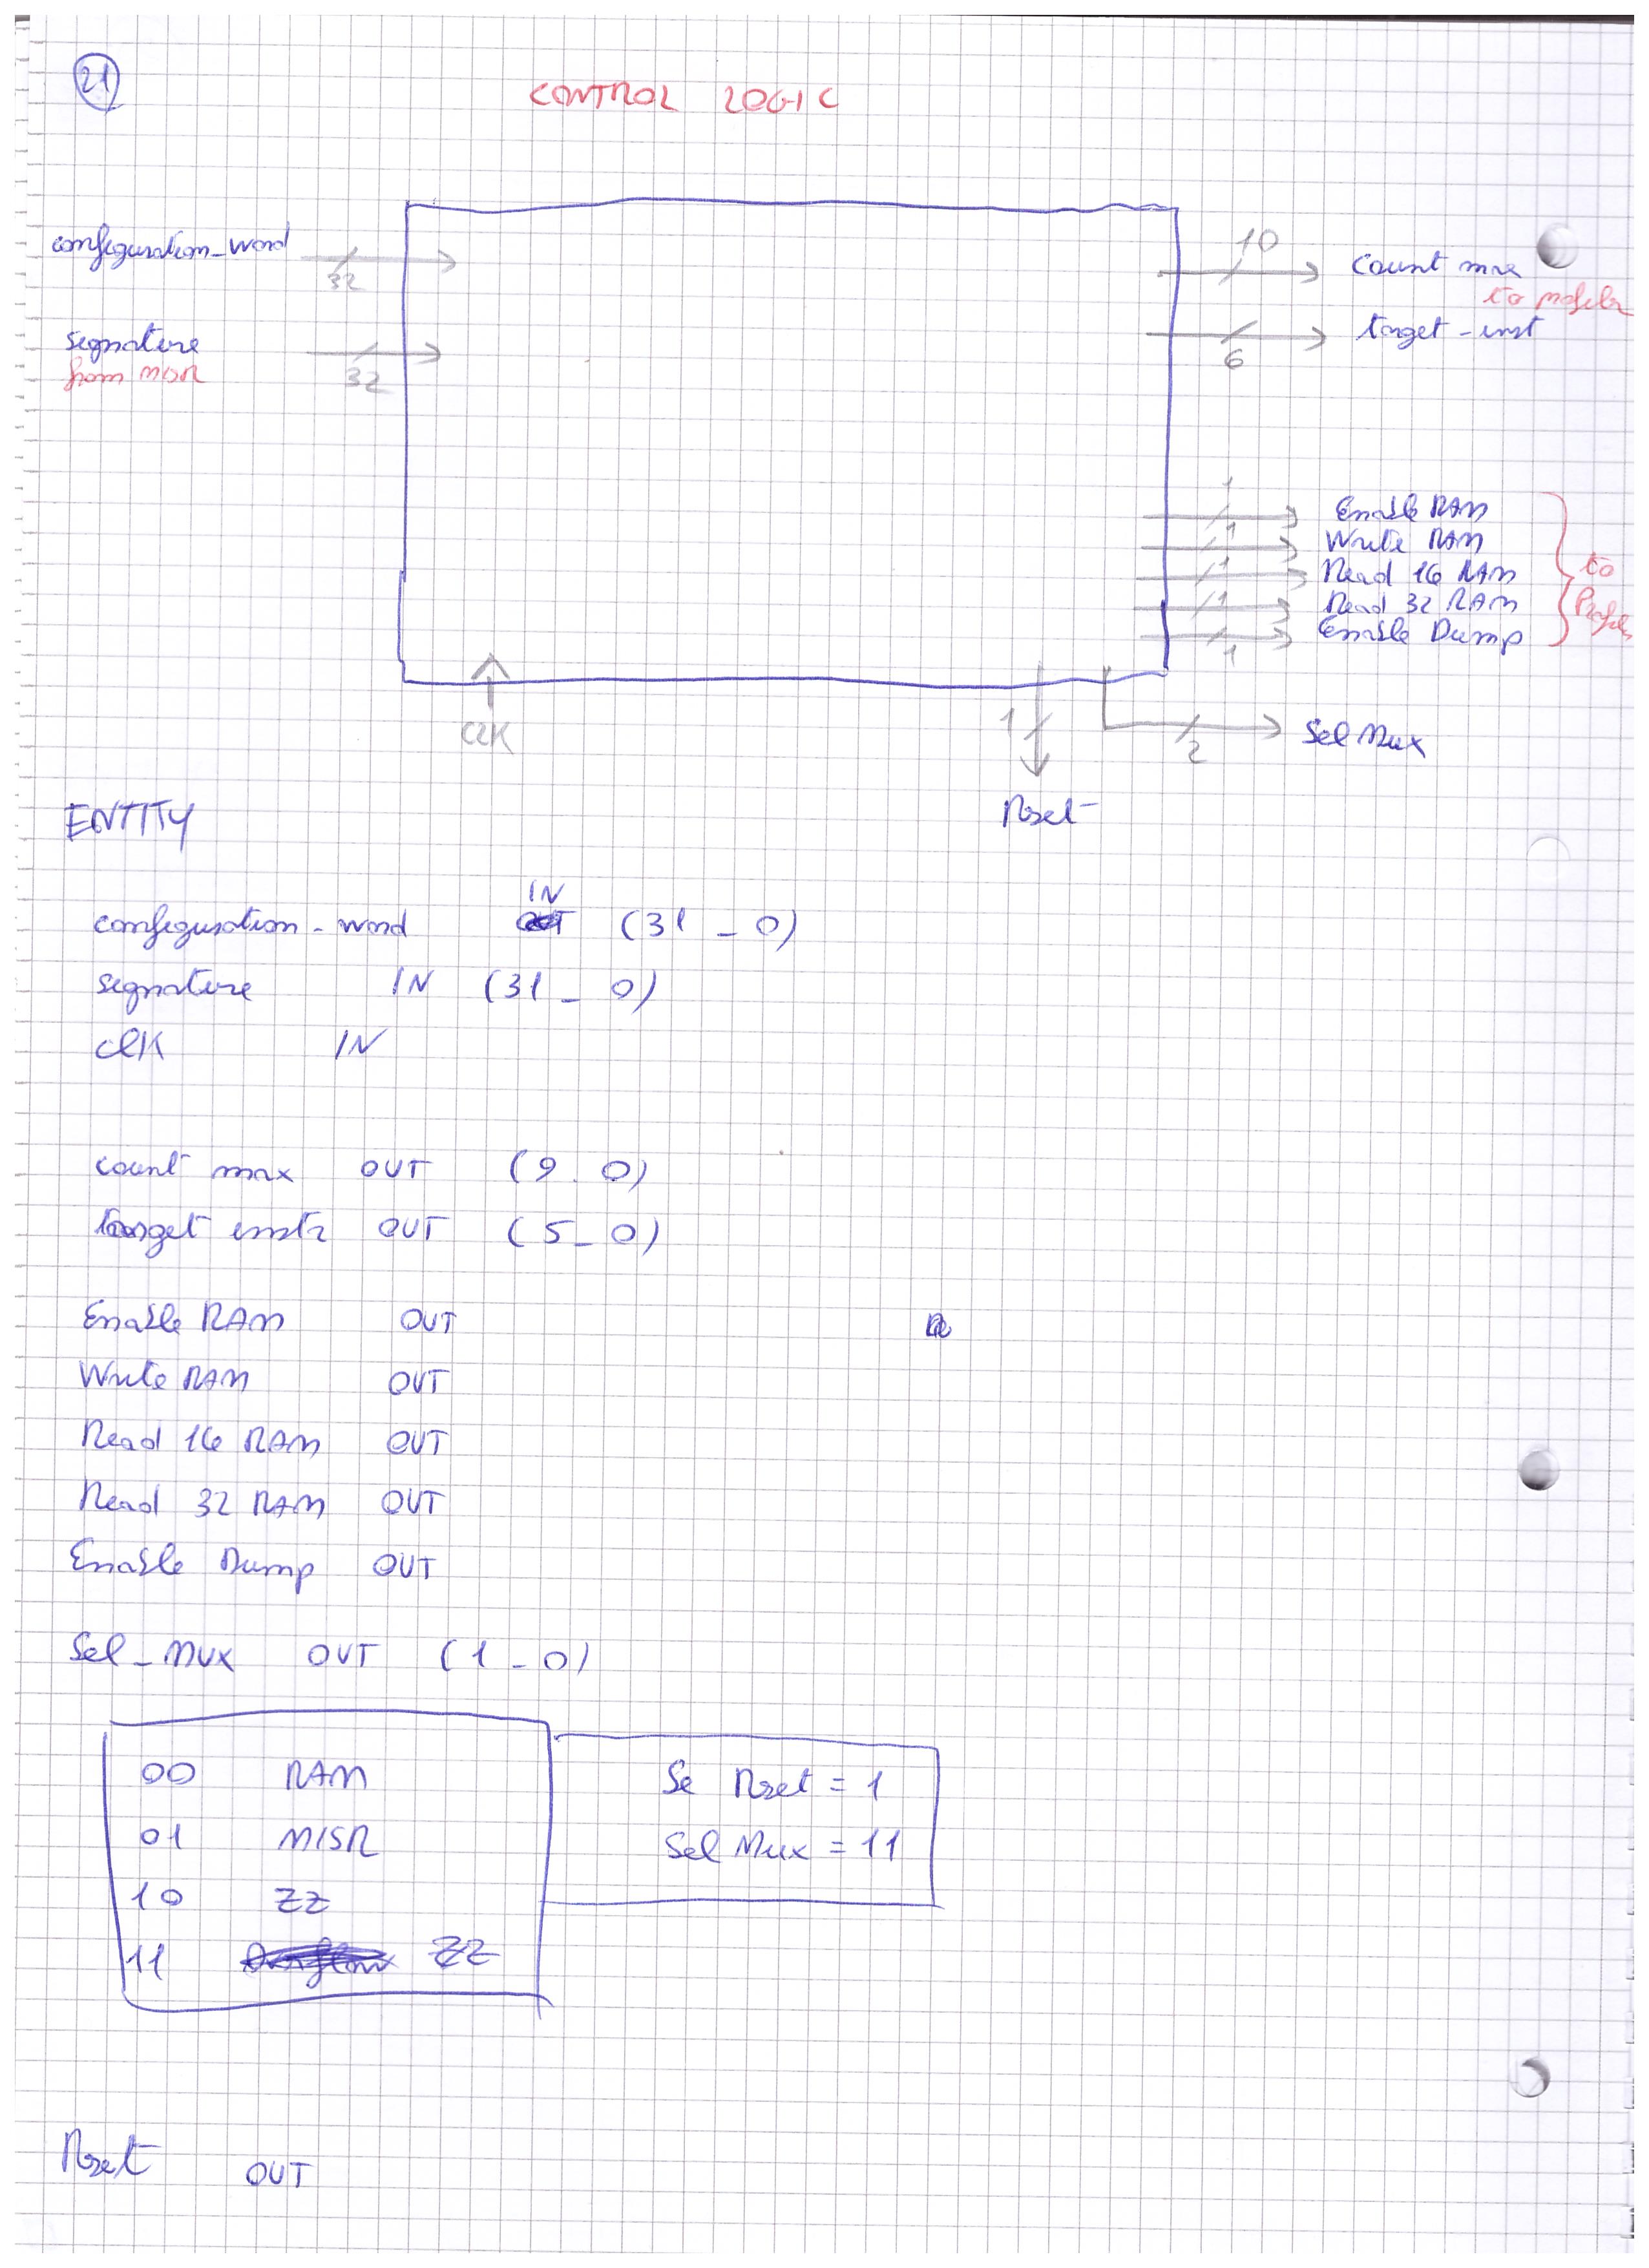 21
CONTROL LOGIC
configuration_word
32
signature
from MISR
32
10
Count max
to profiler
target_inst
6
1
Enable RAM
1
Write RAM
1
Read 16 RAM
1
Read 32 RAM
Enable Dump
1
to
CLK
1
2
Sel Mux
Reset
ENTITY
IN
configuration_word (31_0)
signature IN (31_0)
clK IN
count max OUT (9_0)
target instr OUT (5_0)
Enable RAM OUT
Write RAM OUT
Read 16 RAM OUT
Read 32 RAM OUT
Enable Dump OUT
Sel_MUX OUT (1_0)
00 RAM
01 MISR
10 ZZ
11 ZZ
Se Reset = 1
Sel Mux = 11
Reset OUT